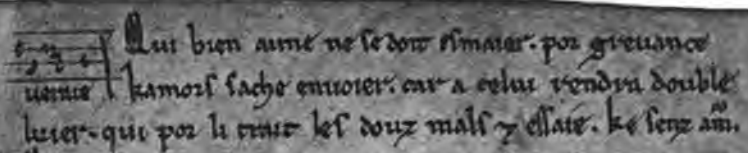 Qui bien aime ne se doit esmaier. por grevance
kamors sache envoier. car a celui rendra double
luier. qui por li trait les douz mals ⁊ essaie. ke senz am̅.